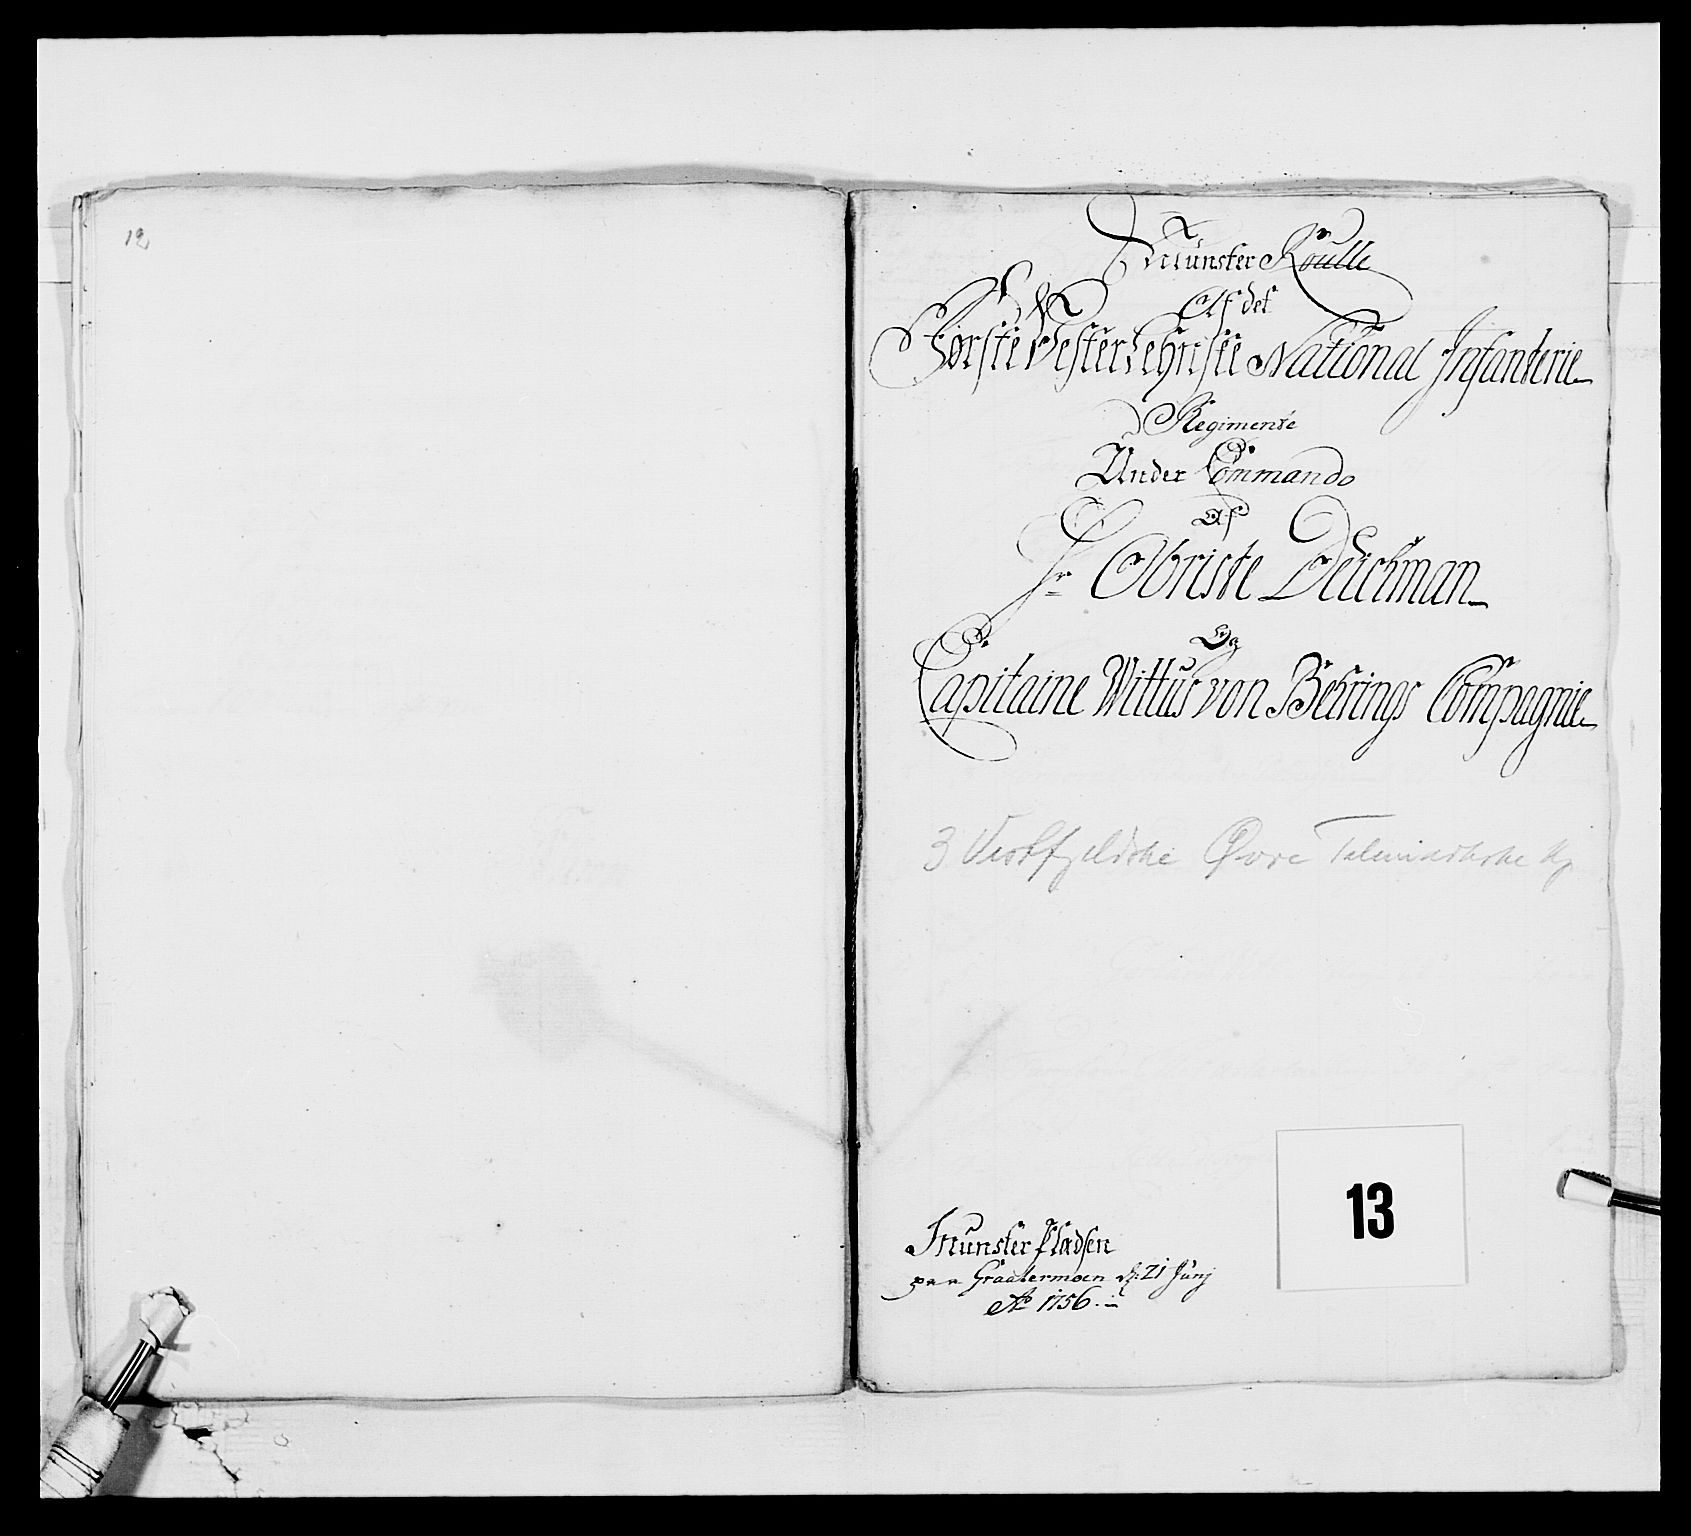 12
Münster Roulle
Af det
Første Vesterlehnske National Infanterie
Regimente
Under Commando
Af
Hr Obriste Deichman
Og
Capitaine Wittus von Behrings Compagnie
3 Vestfjeldske Øvre Telemarkske Kp
13
Münster Pladsen
paa Graatermoen d: 21 Junj
Ao 1756.